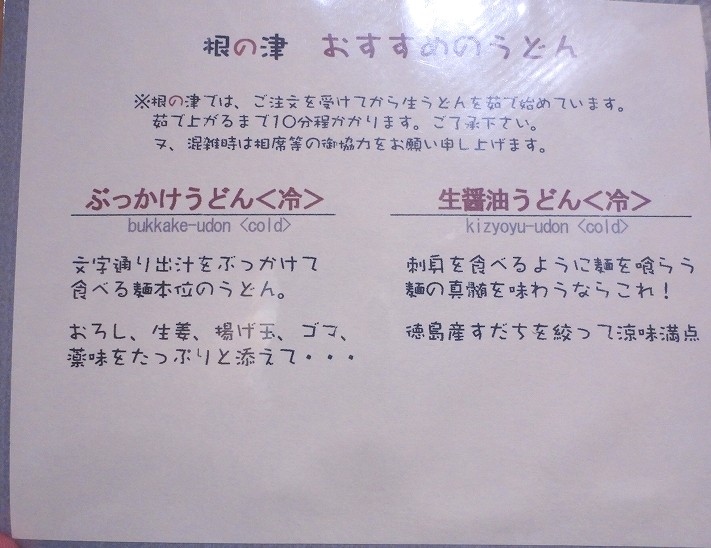 根の津 おすすめのうどん
※根の津では、ご注文を受けてから生うどんを茹で始めています。
茹で上がるまで10分程かかります。ご了承下さい。
又、混雑時は相席等の御協力をお願い申し上げます。
ぶっかけうどん<冷>
bukkake-udon <cold>
文字通り出汁をぶっかけて
食べる麺本位のうどん。
おろし、生姜、揚げ玉、ゴマ、
薬味をたっぷりと添えて・・・
生醤油うどん<冷>
kizyoyu-udon <cold>
刺身を食べるように麺を喰らう
麺の真髄を味わうならこれ！
徳島産すだちを絞って涼味満点